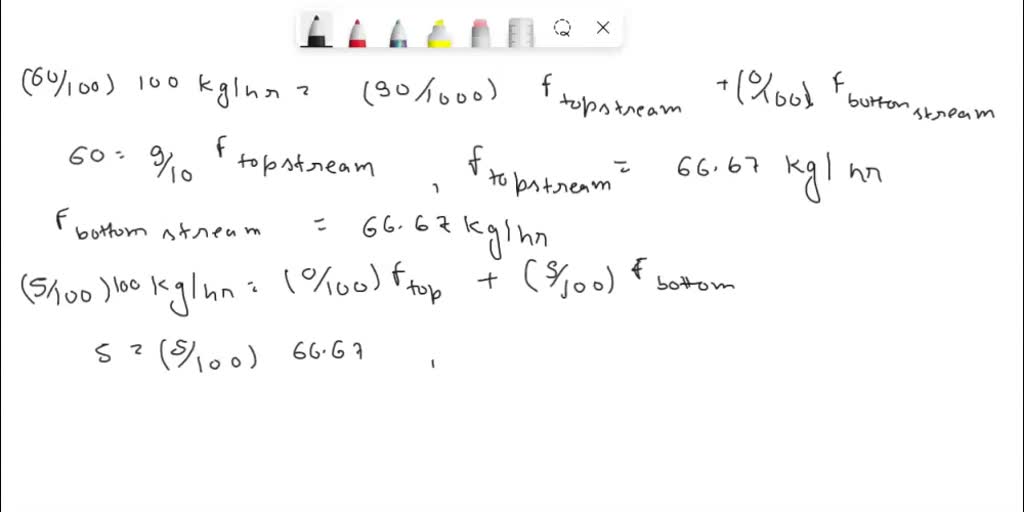 (60/100) 100 kg/hr = (90/1000) f topstream + (0/100) f button stream
60 = 9/10 f topstream , f topstream = 66.67 kg/hr
f bottom stream = 66.67 kg/hr
(5/100) 100 kg/hr = (0/100) f top + (5/100) f bottom
5 = (5/100) 66.67 ,